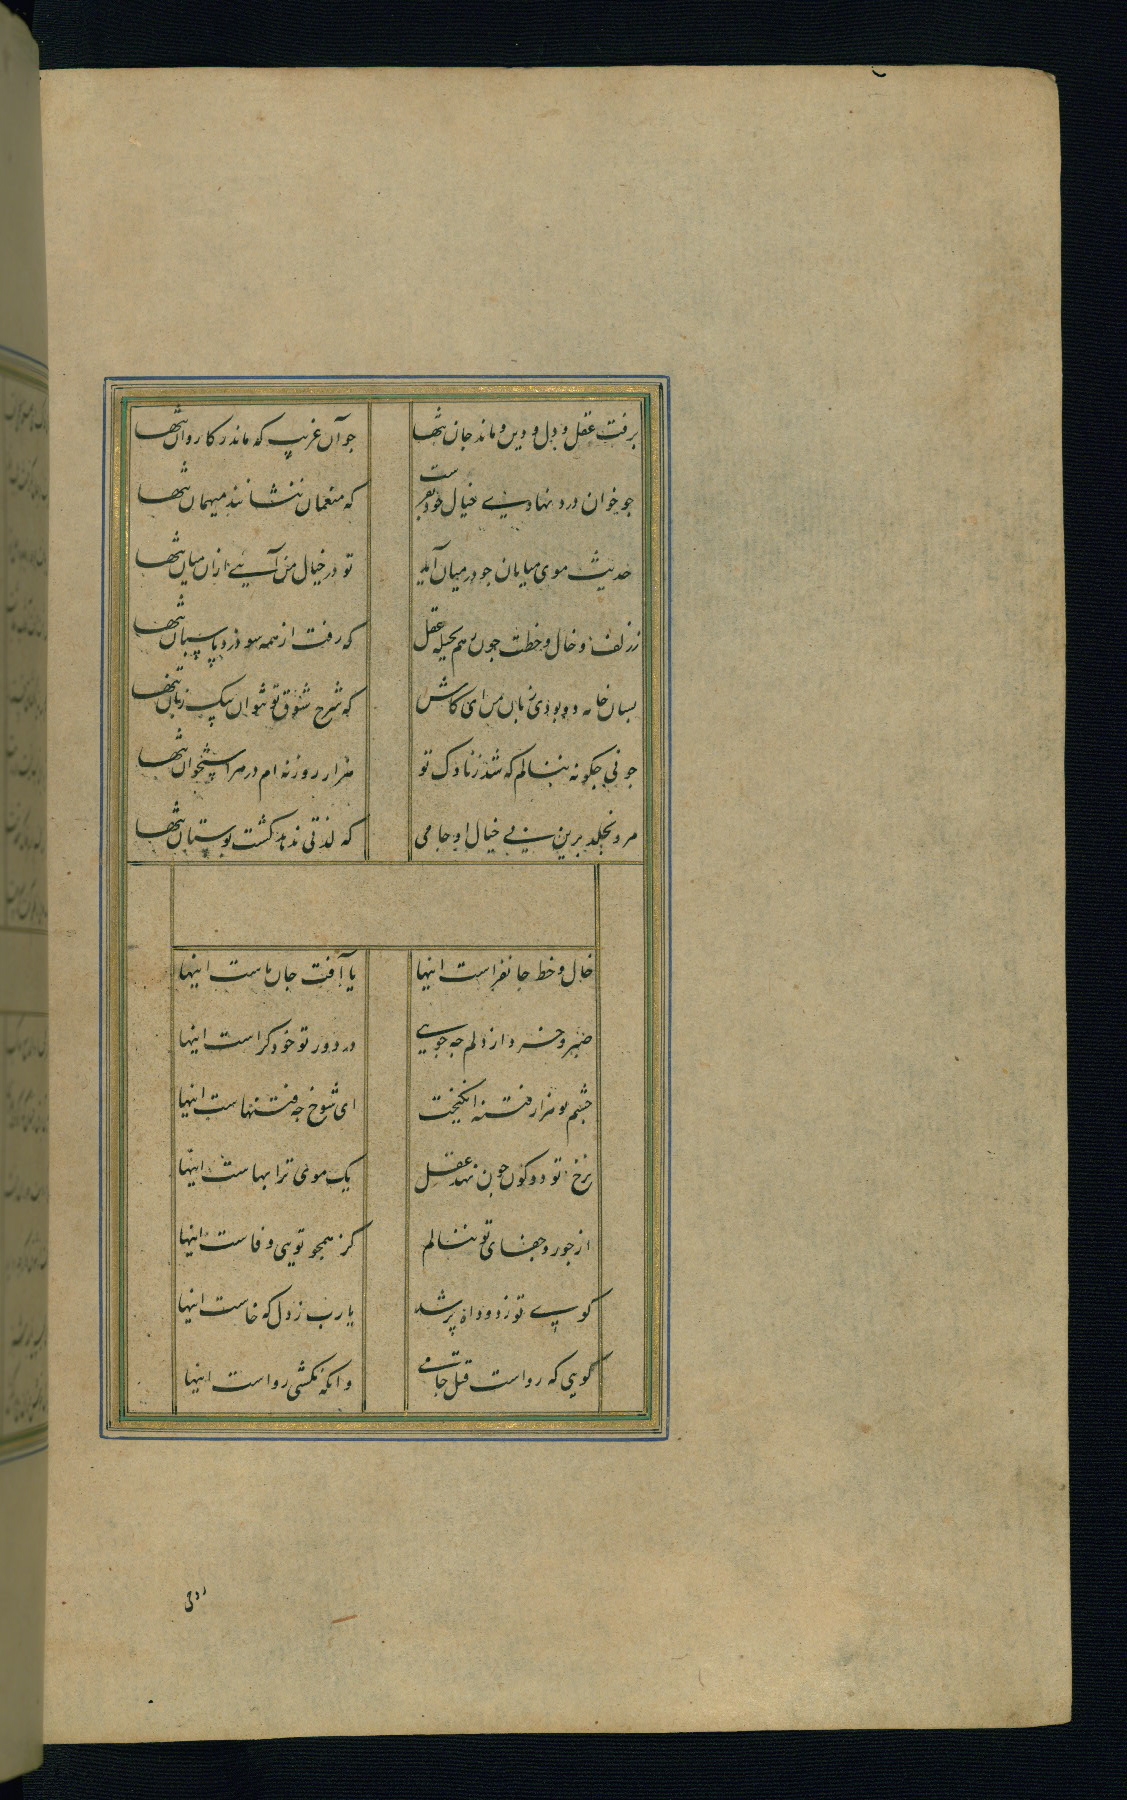 برفت عقل و دل و دین و ماند جان تنها جو آن غریب که ماند ز کاروان تنها
جو خوان درد نهادی خیال خود بفرست که منعمان ننشانند میهمان تنها
حدیث موی میانان جو در میان آید تو در خیال من آیی از آن میان تنها
ز زلف و خال و خطت جون رهم بحیله عقل که رفت از همه سو دزد و پاسبان تنها
بسان خامه دو بودی زبان من ای کاش که شرح شوق تو نتوان بیک زبان تنها
جو نی جکونه ننالم که شد ز ناوک تو هزار روزنه ام در هر استخوان تنها
مرو بخلد برین بی خیال او جامی که لذتی ندهد کشت بوستان تنها
خال و خط جانفراست اینها یا آفت جان ماست اینها
صبر و خرد از دلم جه جویی در دور تو خود کراست اینها
جشم تو هزار فتنه انکیخت ای شوخ جه فتنهاست اینها
نرخ تو دو کون جون نهد عقل یک موی ترا بهاست اینها
از جور و جفای تو ننالم کز همجو تویی وفاست اینها
کوی تو ز دود آه پر شد یا رب ز دل که خاست اینها
کویی که رواست قتل جامی وانکه نکشی رواست اینها